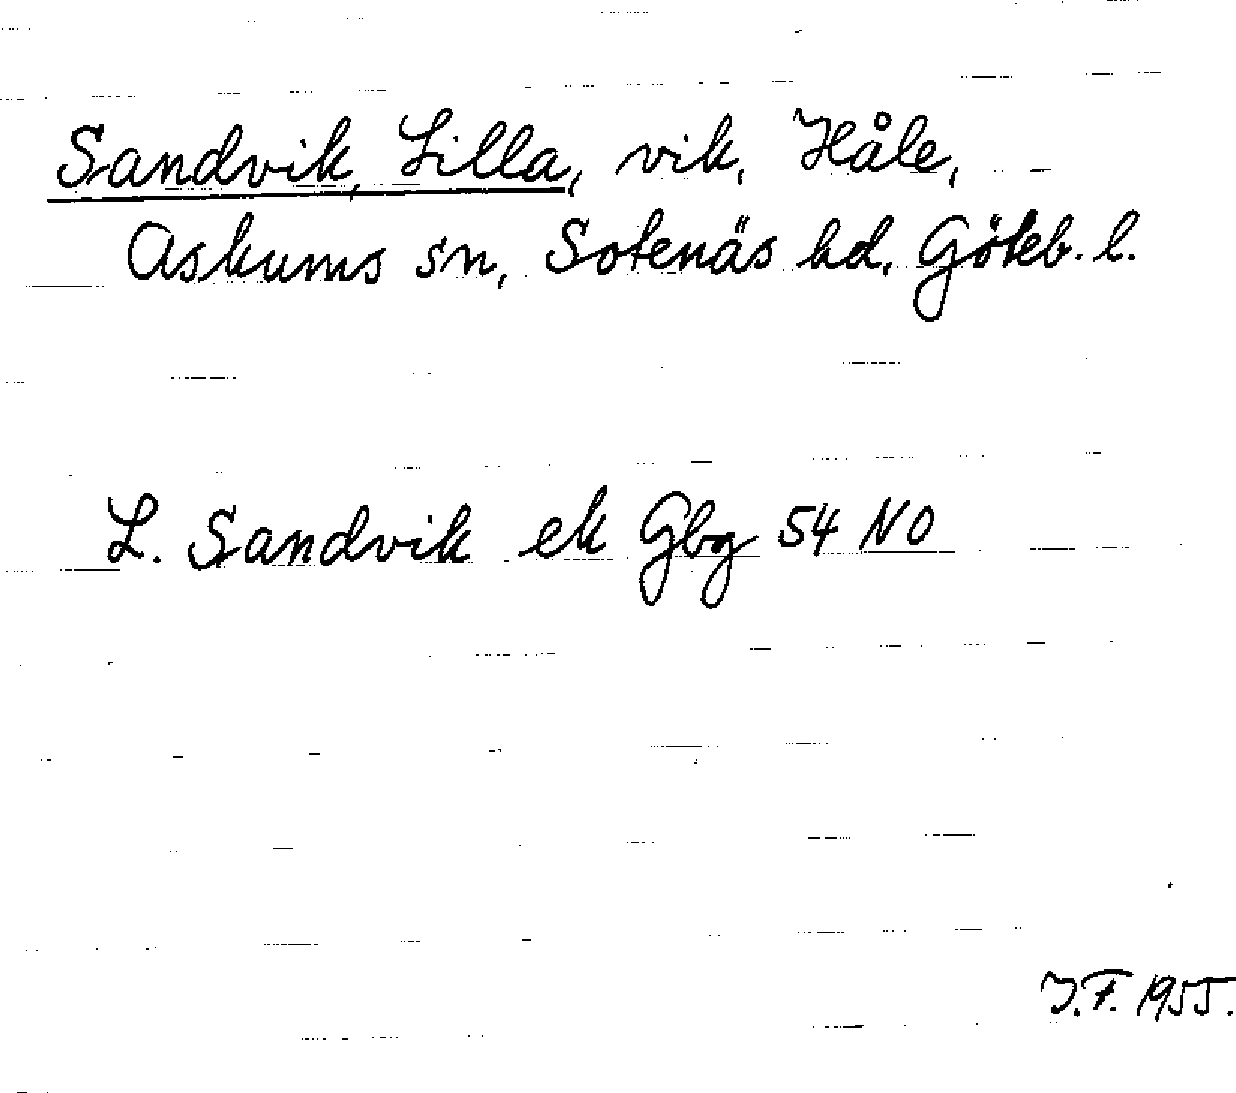 Sandvik, Lilla, vik, Håle,
Askums sn, Sotenäs hd, Göteb. l.
L. Sandvik ek Gbg 54 NO
J.F. 1955.